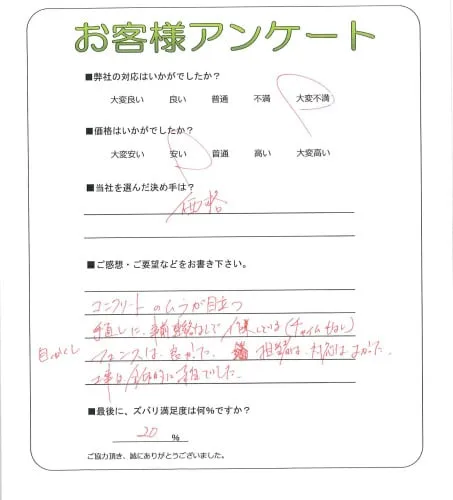 お客様アンケート
■弊社の対応はいかがでしたか?
大変良い 良い 普通 不満 大変不満
■価格はいかがでしたか?
大変安い 安い 普通 高い 大変高い
■当社を選んだ決め手は?
価格
■ご感想・ご要望などをお書き下さい。
コンクリートのムラが目立つ
手直しに、事前連絡なしで 作業している(チャイムなし)
目かくし フェンスは、良かった。 担当者は、対応はよかった。
工事は全体的に不満でした。
■最後に、ズバリ満足度は何%ですか?
20 %
ご協力頂き、誠にありがとうございました。